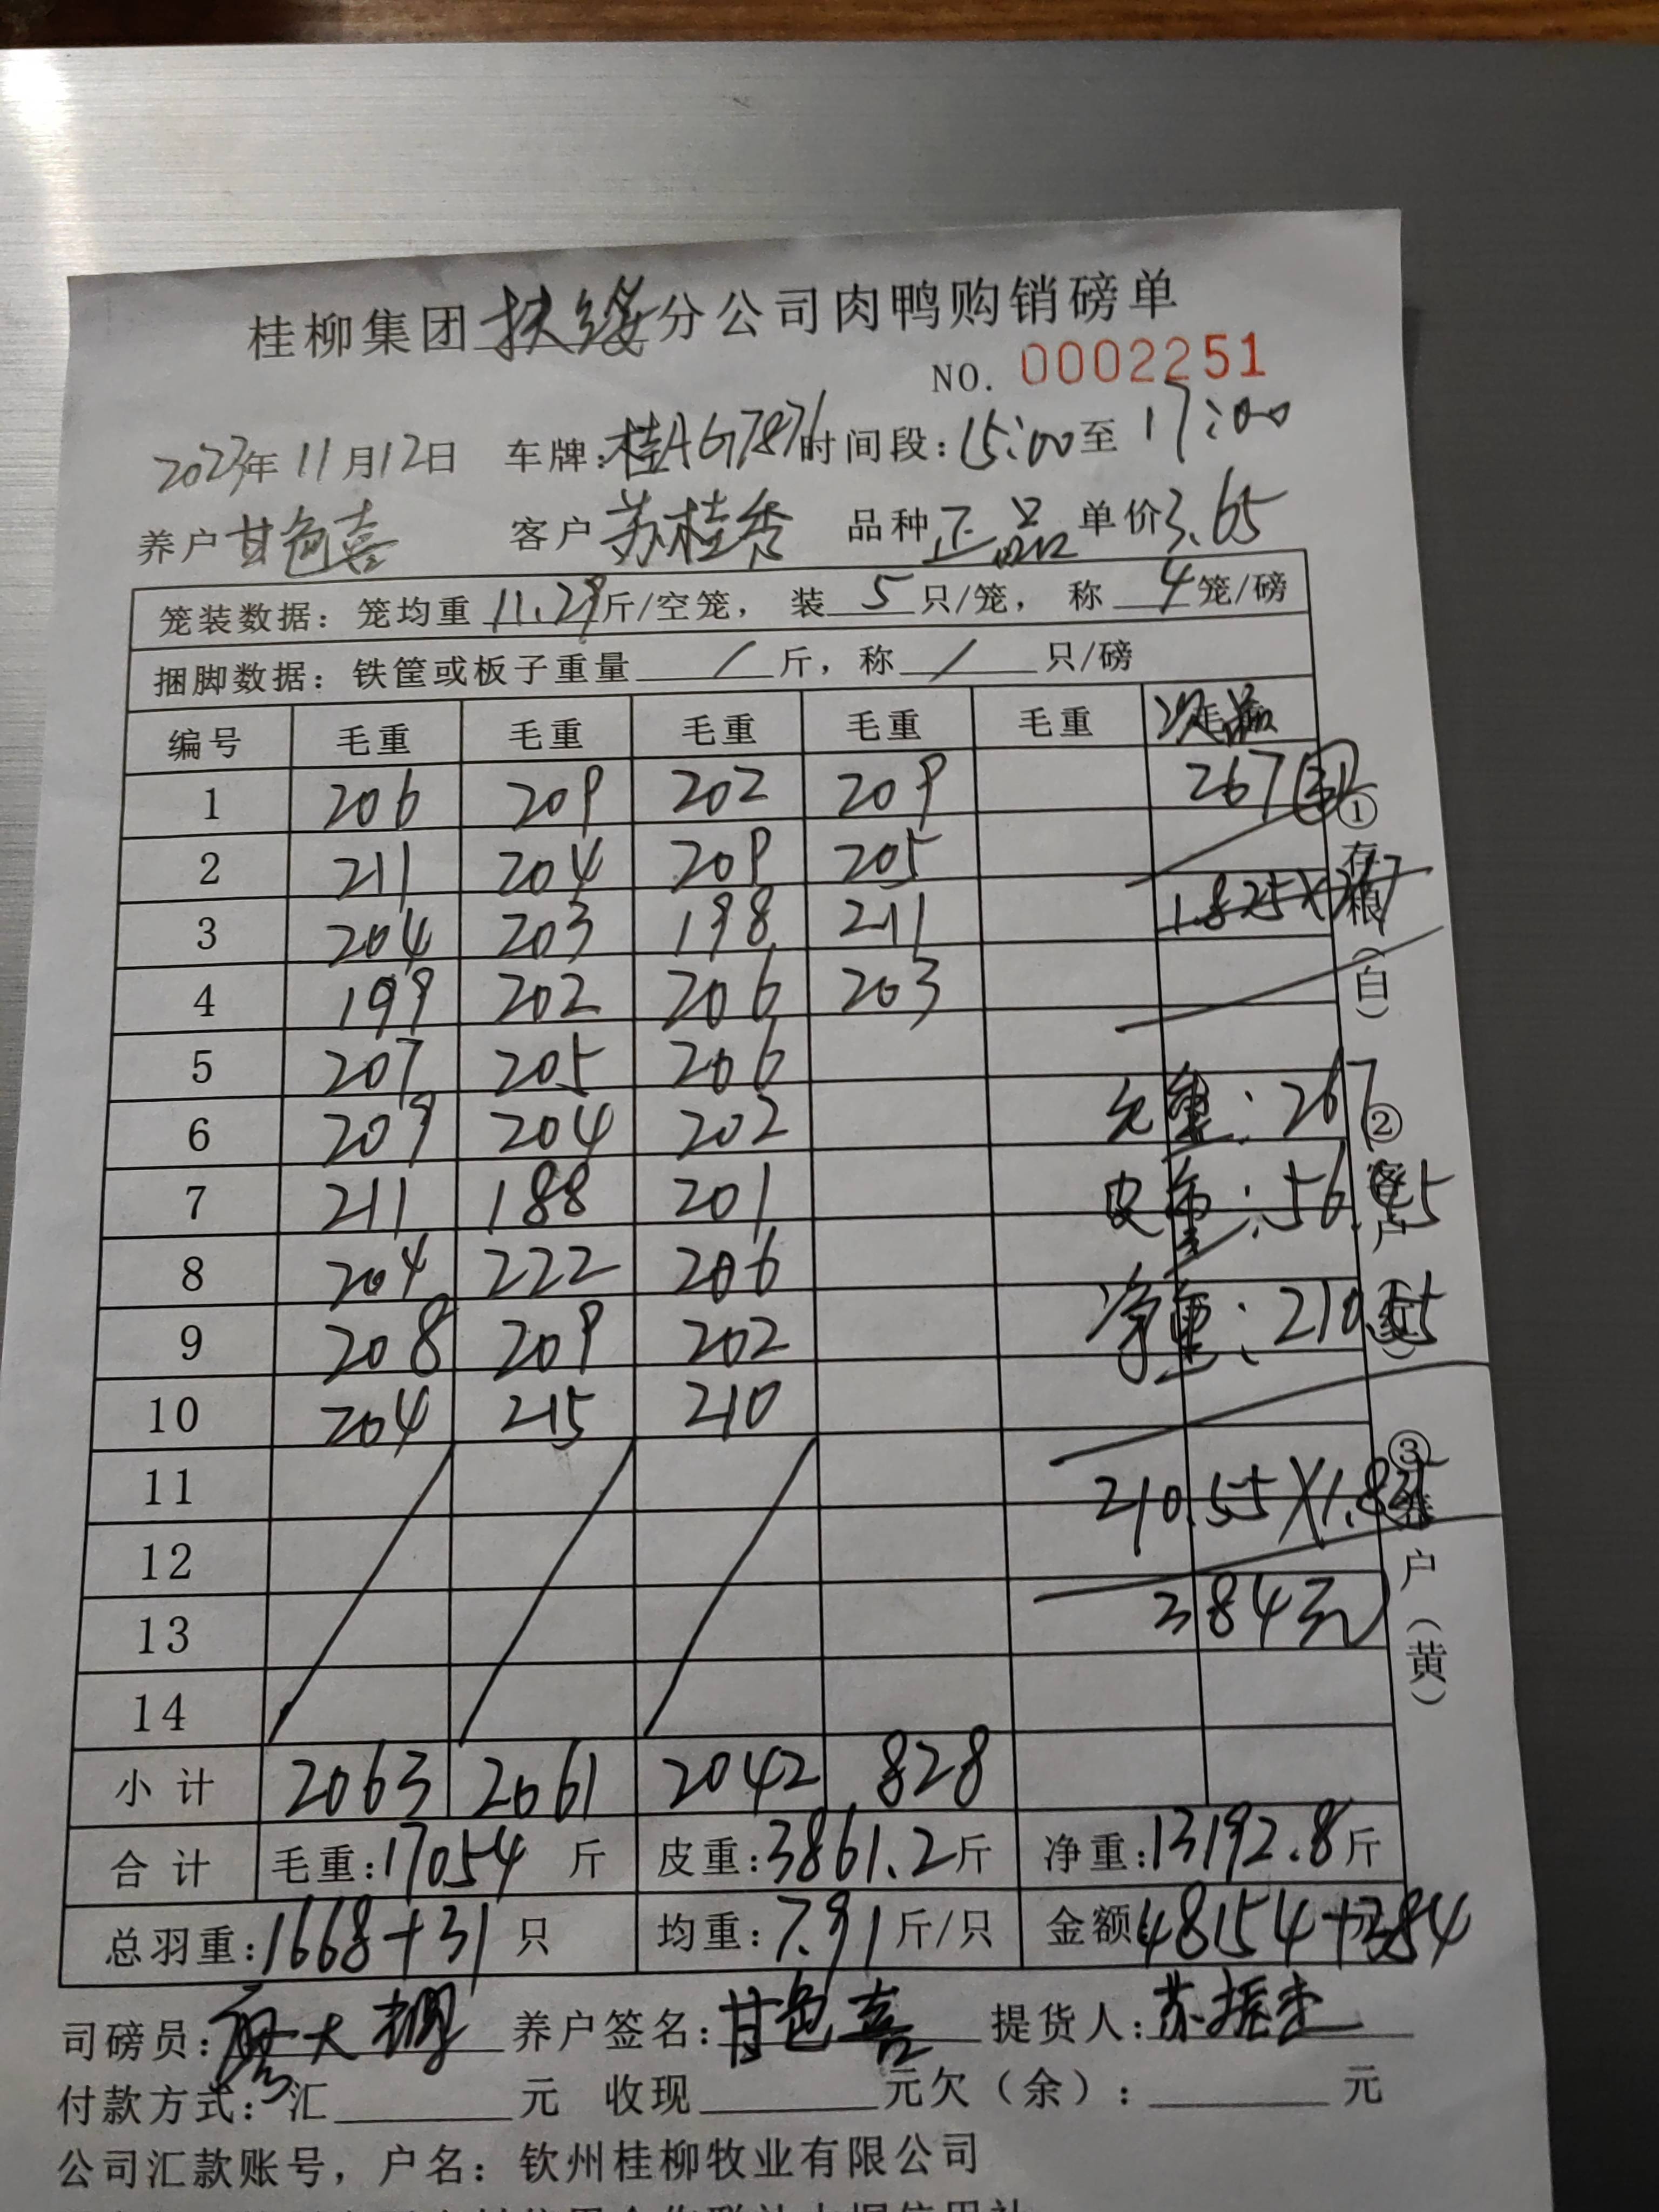 桂柳集团扶绥分公司肉鸭购销磅单
NO. 0002251
2023年11月12日 车牌:桂AG7876时间段:15:00至17:00
养户甘色喜 客户苏桂秀 品种正品 单价3.65
笼装数据: 笼均重 11.29斤/空笼, 装 5 只/笼, 称 4 笼/磅
捆脚数据: 铁筐或板子重量 / 斤, 称 / 只/磅
编号 毛重 毛重 毛重 毛重 毛重 次品
1 206 209 202 209 267
2 211 204 209 205
3 204 203 198 211 1.825×267
4 199 202 206 203
5 207 205 206
6 209 204 202 毛重:267
7 211 188 201 皮重:56.45
8 204 222 206
9 208 209 202 净重:210.55
10 204 215 210
11 210.55×1.825
12
13 384元
14
小计 2063 2061 2042 828
合计 毛重:17054 斤 皮重:3861.2斤 净重:13192.8斤
总羽重:1668+31只 均重:7.91斤/只 金额48154+384
司磅员: 养户签名:甘色喜 提货人:苏振
付款方式: 汇 元 收现 元欠(余): 元
公司汇款账号, 户名: 钦州桂柳牧业有限公司
①存根(白)
②客户(红)
③养户(黄)